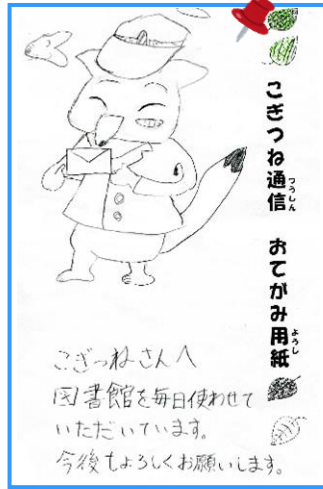 こぎつね通信 おてがみ用紙
つうしん
ようし
こぎつねさんへ
図書館を毎日使わせて
いただいています。
今後もよろしくお願いします。